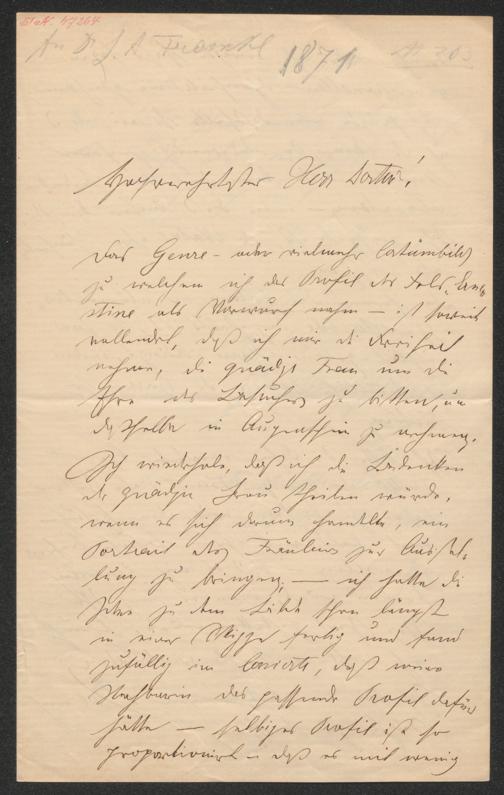 An Dr. L. A. Frankl
1871
Hochverehrtester Herr Doctor!
Das Genre- oder vielmehr Costümbild
zu welchem ich das Profil des Frls. Erne-
stine als Vorwurf nahm – ist soweit
vollendet, daß ich mir die Freiheit
nehme, die gnädge Frau um die
Ehre des Besuches zu bitten, um
dasselbe in Augenschein zu nehmen.
Ich wiederhole, daß ich die Bedenken
der gnädgen Frau theilen würde,
wenn es sich darum handelte, ein
Portrait des Fräuleins zur Ausstel-
lung zu bringen; – ich hatte die
Idee zu dem Bilde schon längst
in einer Skizze fertig und fand
zufällig im Concerte, daß meine
Nachbarin das passende Profil dafür
hätte – selbiges Profil ist so
proportionirt – daß es mit wenig